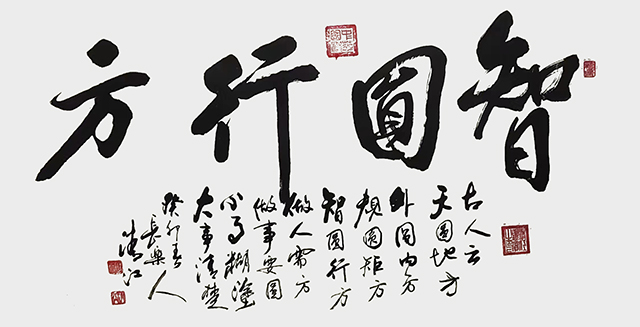 智圓行方
古人云
天圓地方
外圓內方
規圓矩方
智圓行方
做人需方
做事要圓
小事糊塗
大事清楚
癸卯春
長樂人
清江